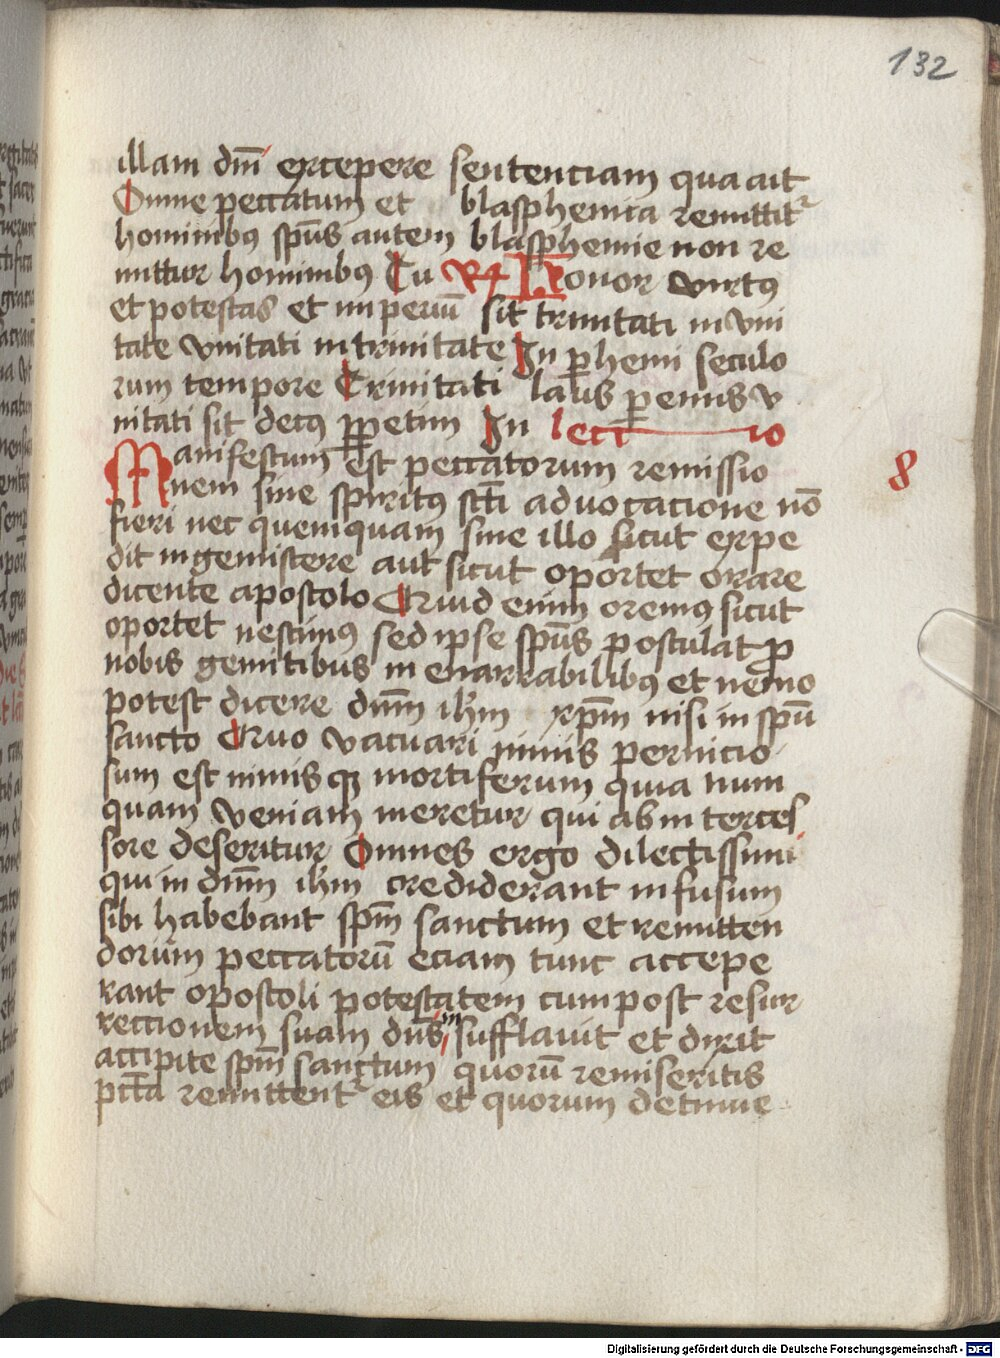 132
illam dm̄ excepere sentenciam qua ait
Omne peccatum et blasphemia remittit᷑
hominibꝯ spūs autem blasphemie non re
mittitur hominibꝯ Tu R⁊ Honor virtꝯ
et potestas et imperiū sit trinitati in vni
tate vnitati in trinitate In ꝑhenni seculo
rum tempore Trinitati laus ꝑennis v
nitati sit decꝯ ꝑpetim In lectio
Manifestum est peccatorum remissio
8
nem sine spiritꝯ scti advocacione nō
fieri nec quemquam sine illo sicut expe
dit ingemiscere aut sicut oportet orare
dicente apostolo Quid enim oremꝯ sicut
oportet nescimꝯ sed ipse spūs postulat ꝓ
nobis gemitibus in enarrabilibꝯ et nemo
potest dicere dnm̄ ihm xpm̄ nisi in spū
sancto Quo vacuari nimis pernicio
sum est nimis qꝫ mortiferum quia num
quam veniam meretur qui ab in terces
sore deseritur Omnes ergo dilectissimi
qui in dnm̄ ihm crediderant infusum
sibi habebant spm̄ sanctum et remitten
dorum peccatorū eciam tunc accepe
rant opostoli potestatem cum post resur
reccionem suam dn̄s in sufflauit et dixit
accipite spm̄ sanctum quorū remiseritis
pctā remittent᷑ eis et quorum detinue
Digitalisierung gefördert durch die Deutsche Forschungsgemeinschaft - DFG